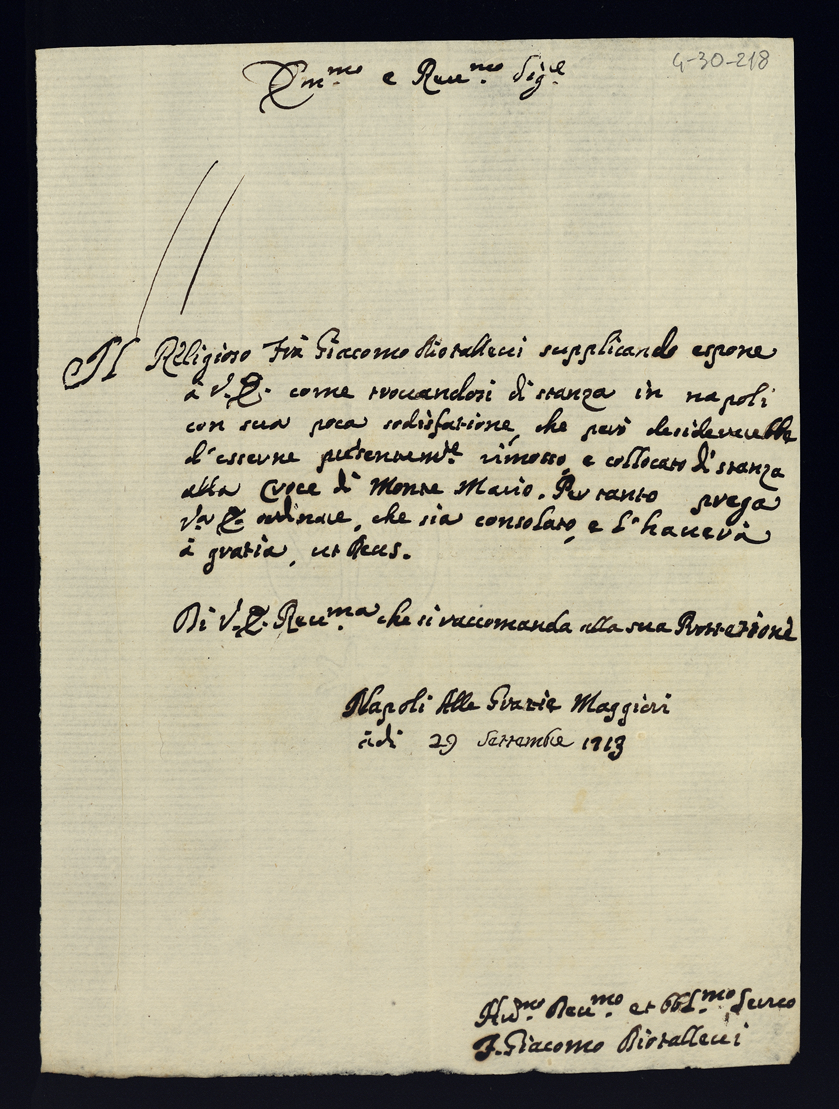 4-30-218
Em.mo e Reu.mo Sig.e
Il Religioso Frà Giacomo Diotalleui supplicando espone
à V. E. come trouandosi di stanza in napoli
con sua poca sodisfatione, che però desiderarebbe
d'esserne presentem.te rimosso, e collocato di stanza
alla Croce di Monte Mario. Per tanto prega
V.a E. ordinare, che sia consolato, e l'hauerà
à gratia, ut Deus.
Di V. E. Reu.ma che si raccomanda alla sua Protettione
Napoli Alle Gratie Maggiori
àdi 29 Settembre 1713
Hu.mo Deu.mo et obl.mo Seruo
F. Giacomo Diotalleui